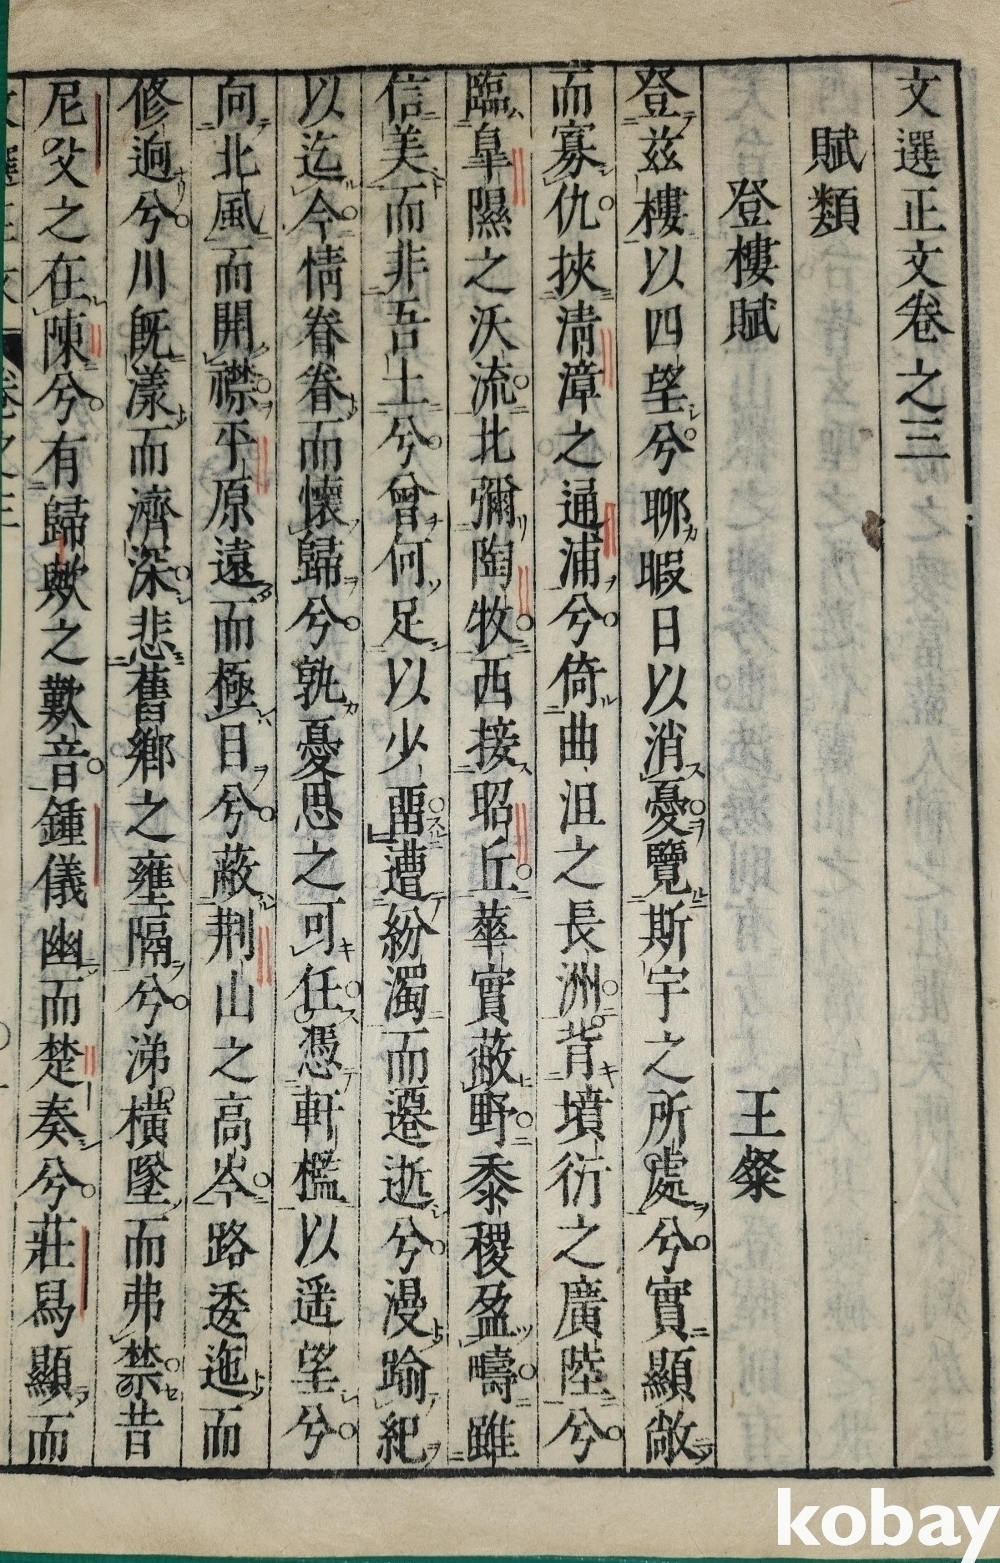 文選正文卷之三
賦類
登樓賦　王粲
登茲樓以四望兮聊暇日以消憂覽斯宇之所處兮實顯敞
而寡仇挾清漳之通浦兮倚曲沮之長洲背墳衍之廣陸兮
臨皐隰之沃流北彌陶牧西接昭丘華實蔽野黍稷盈疇雖
信美而非吾土兮曾何足以少畱遭紛濁而遷逝兮漫踰紀
以迄今情眷眷而懷歸兮孰憂思之可任憑軒檻以遥望兮
向北風而開襟平原遠而極目兮蔽荆山之高岑路逶迤而
修逈兮川既漾而濟深悲舊鄉之壅隔兮涕橫墜而弗禁昔
尼父之在陳兮有歸歟之歎音鍾儀幽而楚奏兮莊舄顯而
kobay